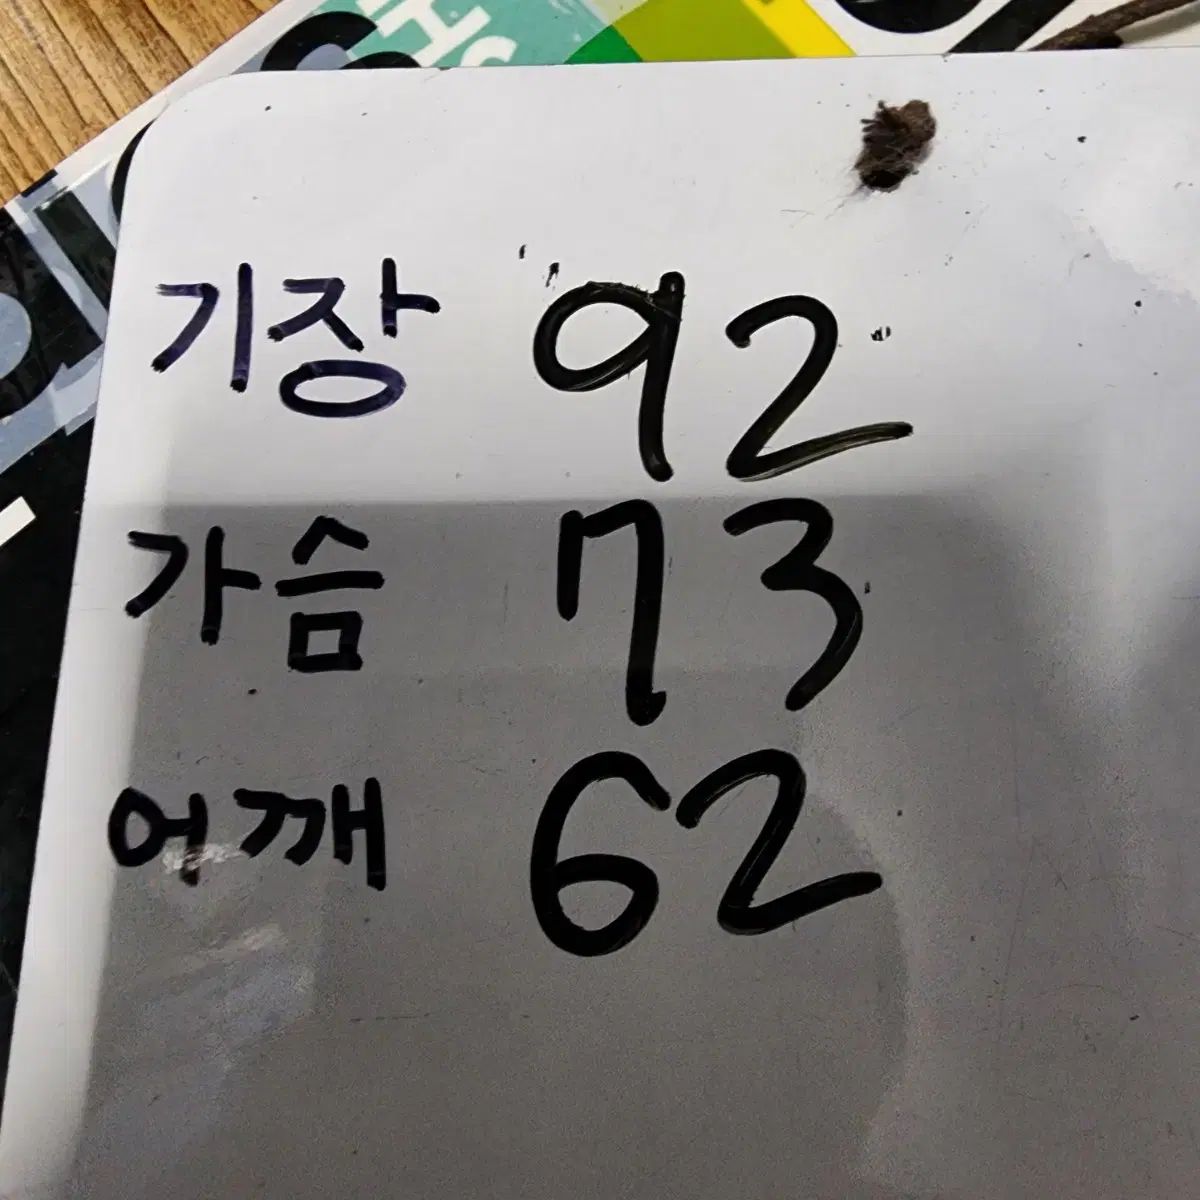 기장 92
가슴 73
어깨 62